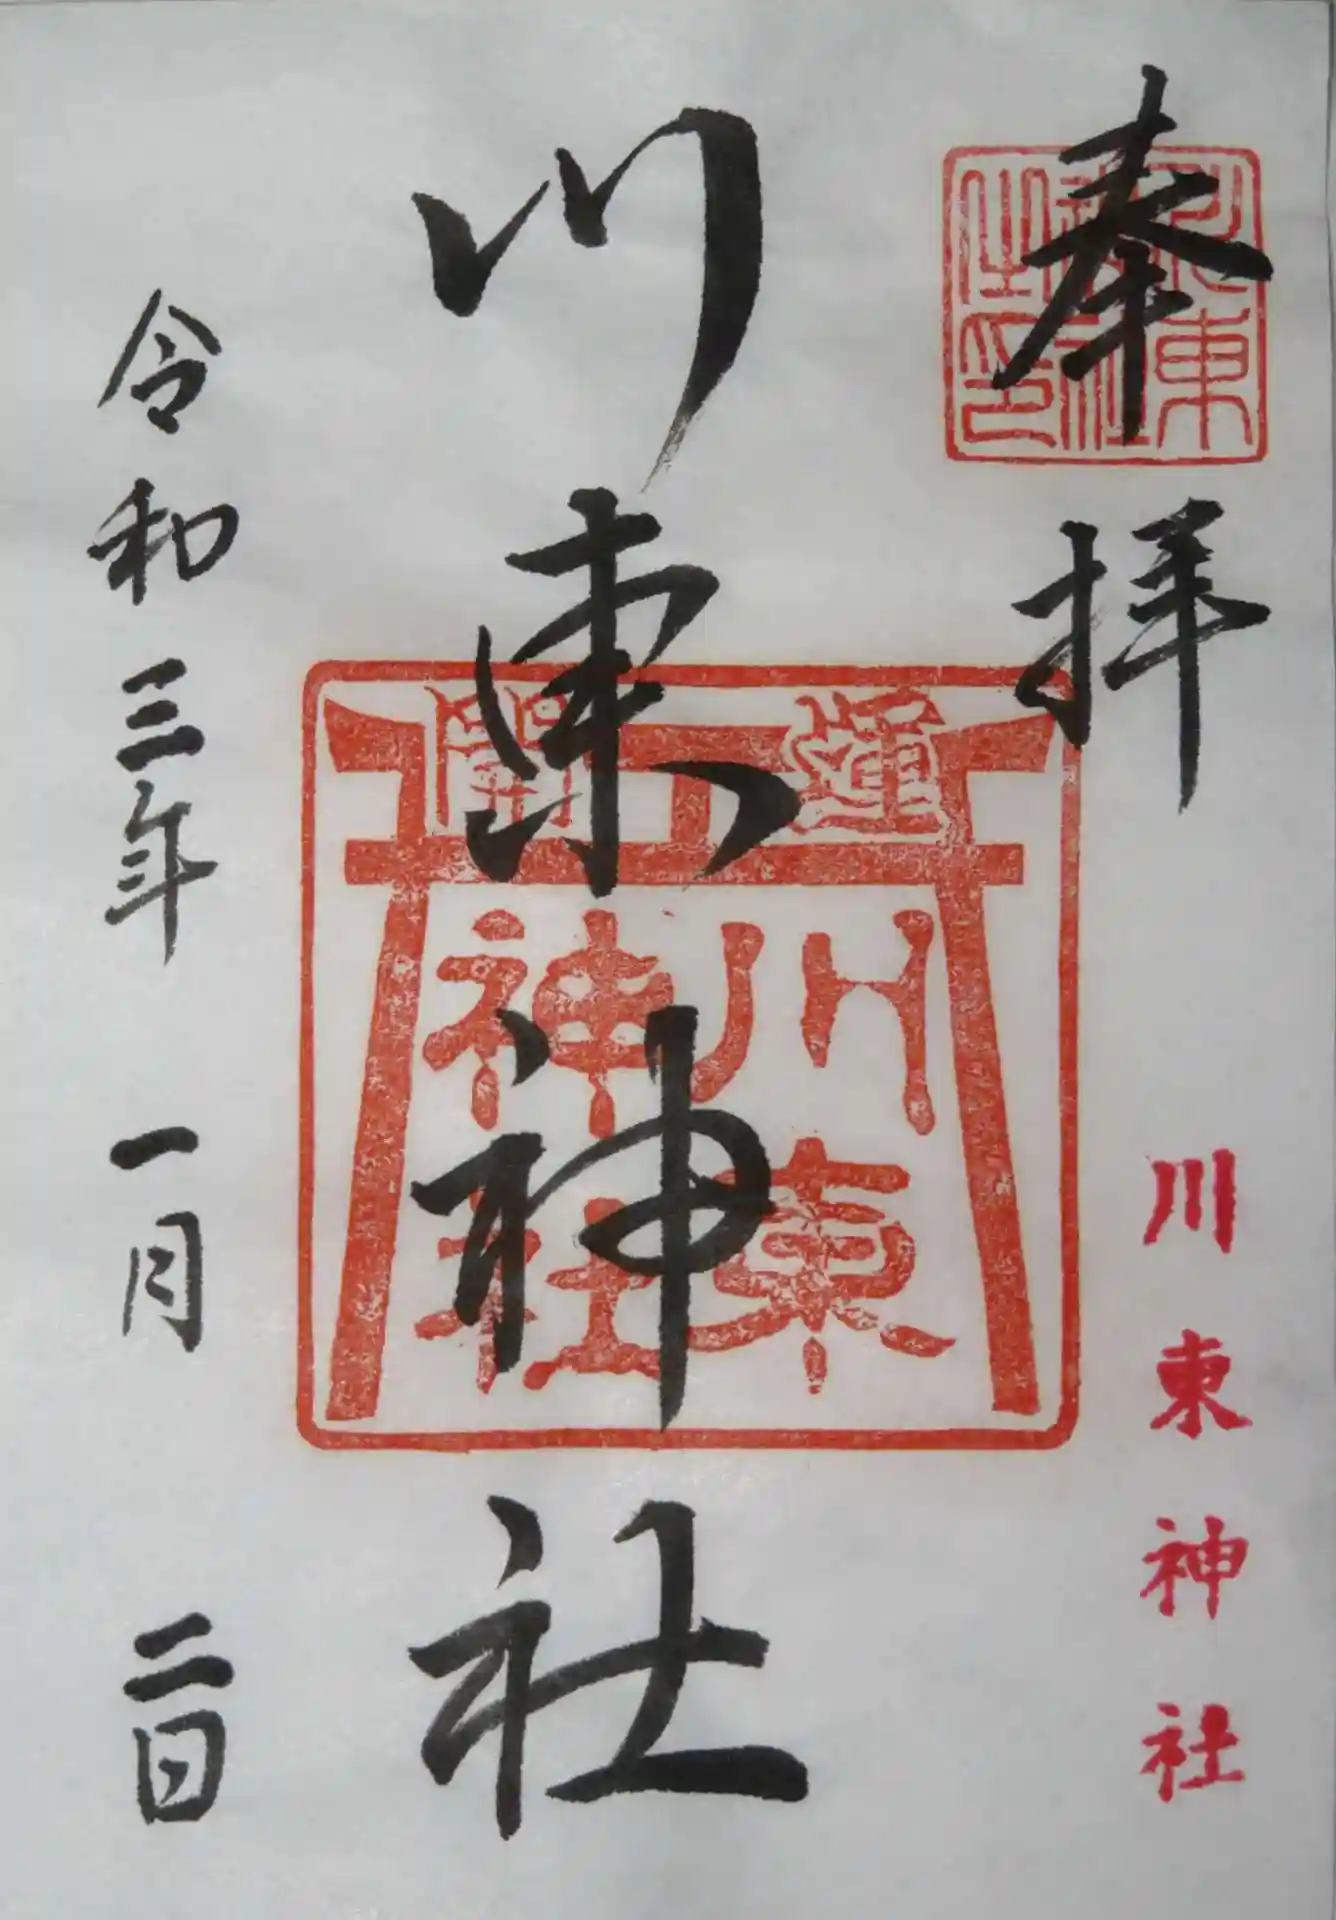 奉拝
川東神社之印
川東神社
川東神社
川東神社
令和三年 一月 二日